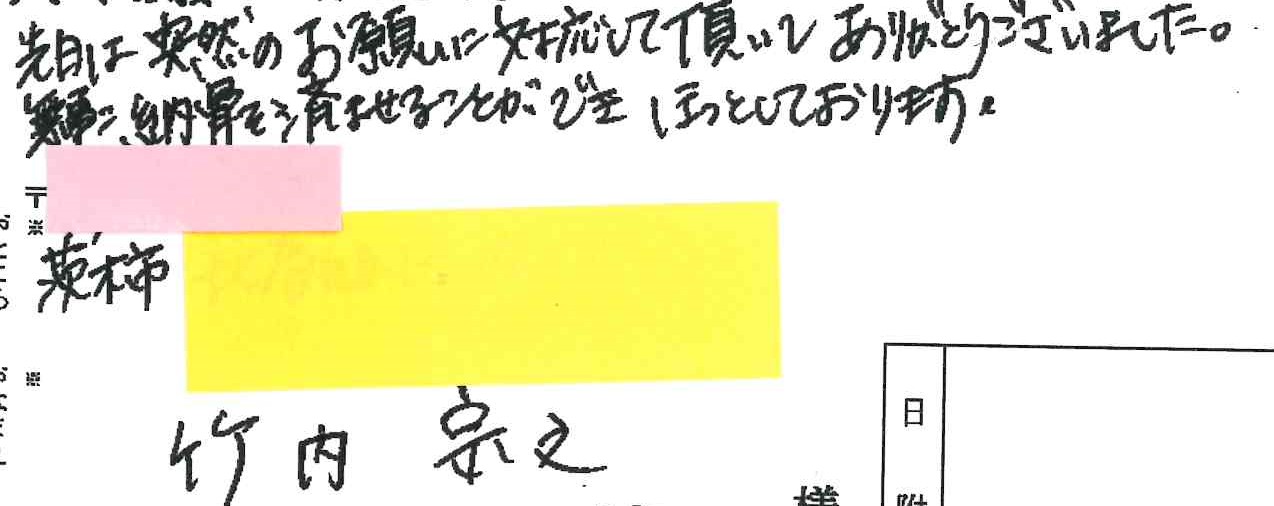 先日は突然のお願いに対応して頂いて ありがとうございました。
無事に納骨を済ませることができ ほっとしております。
〒
※
茨木市
※
竹内 宗之
様
日
附